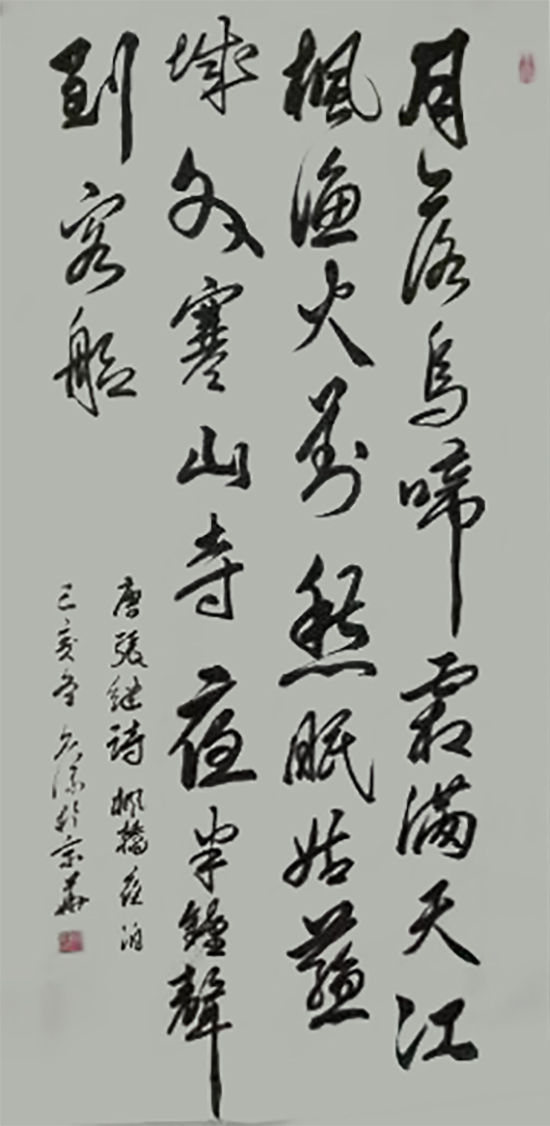 月落烏啼霜滿天江
楓漁火對愁眠姑蘇
城外寒山寺夜半鐘聲
到客船
唐張继詩楓橋夜泊
己亥冬於京華